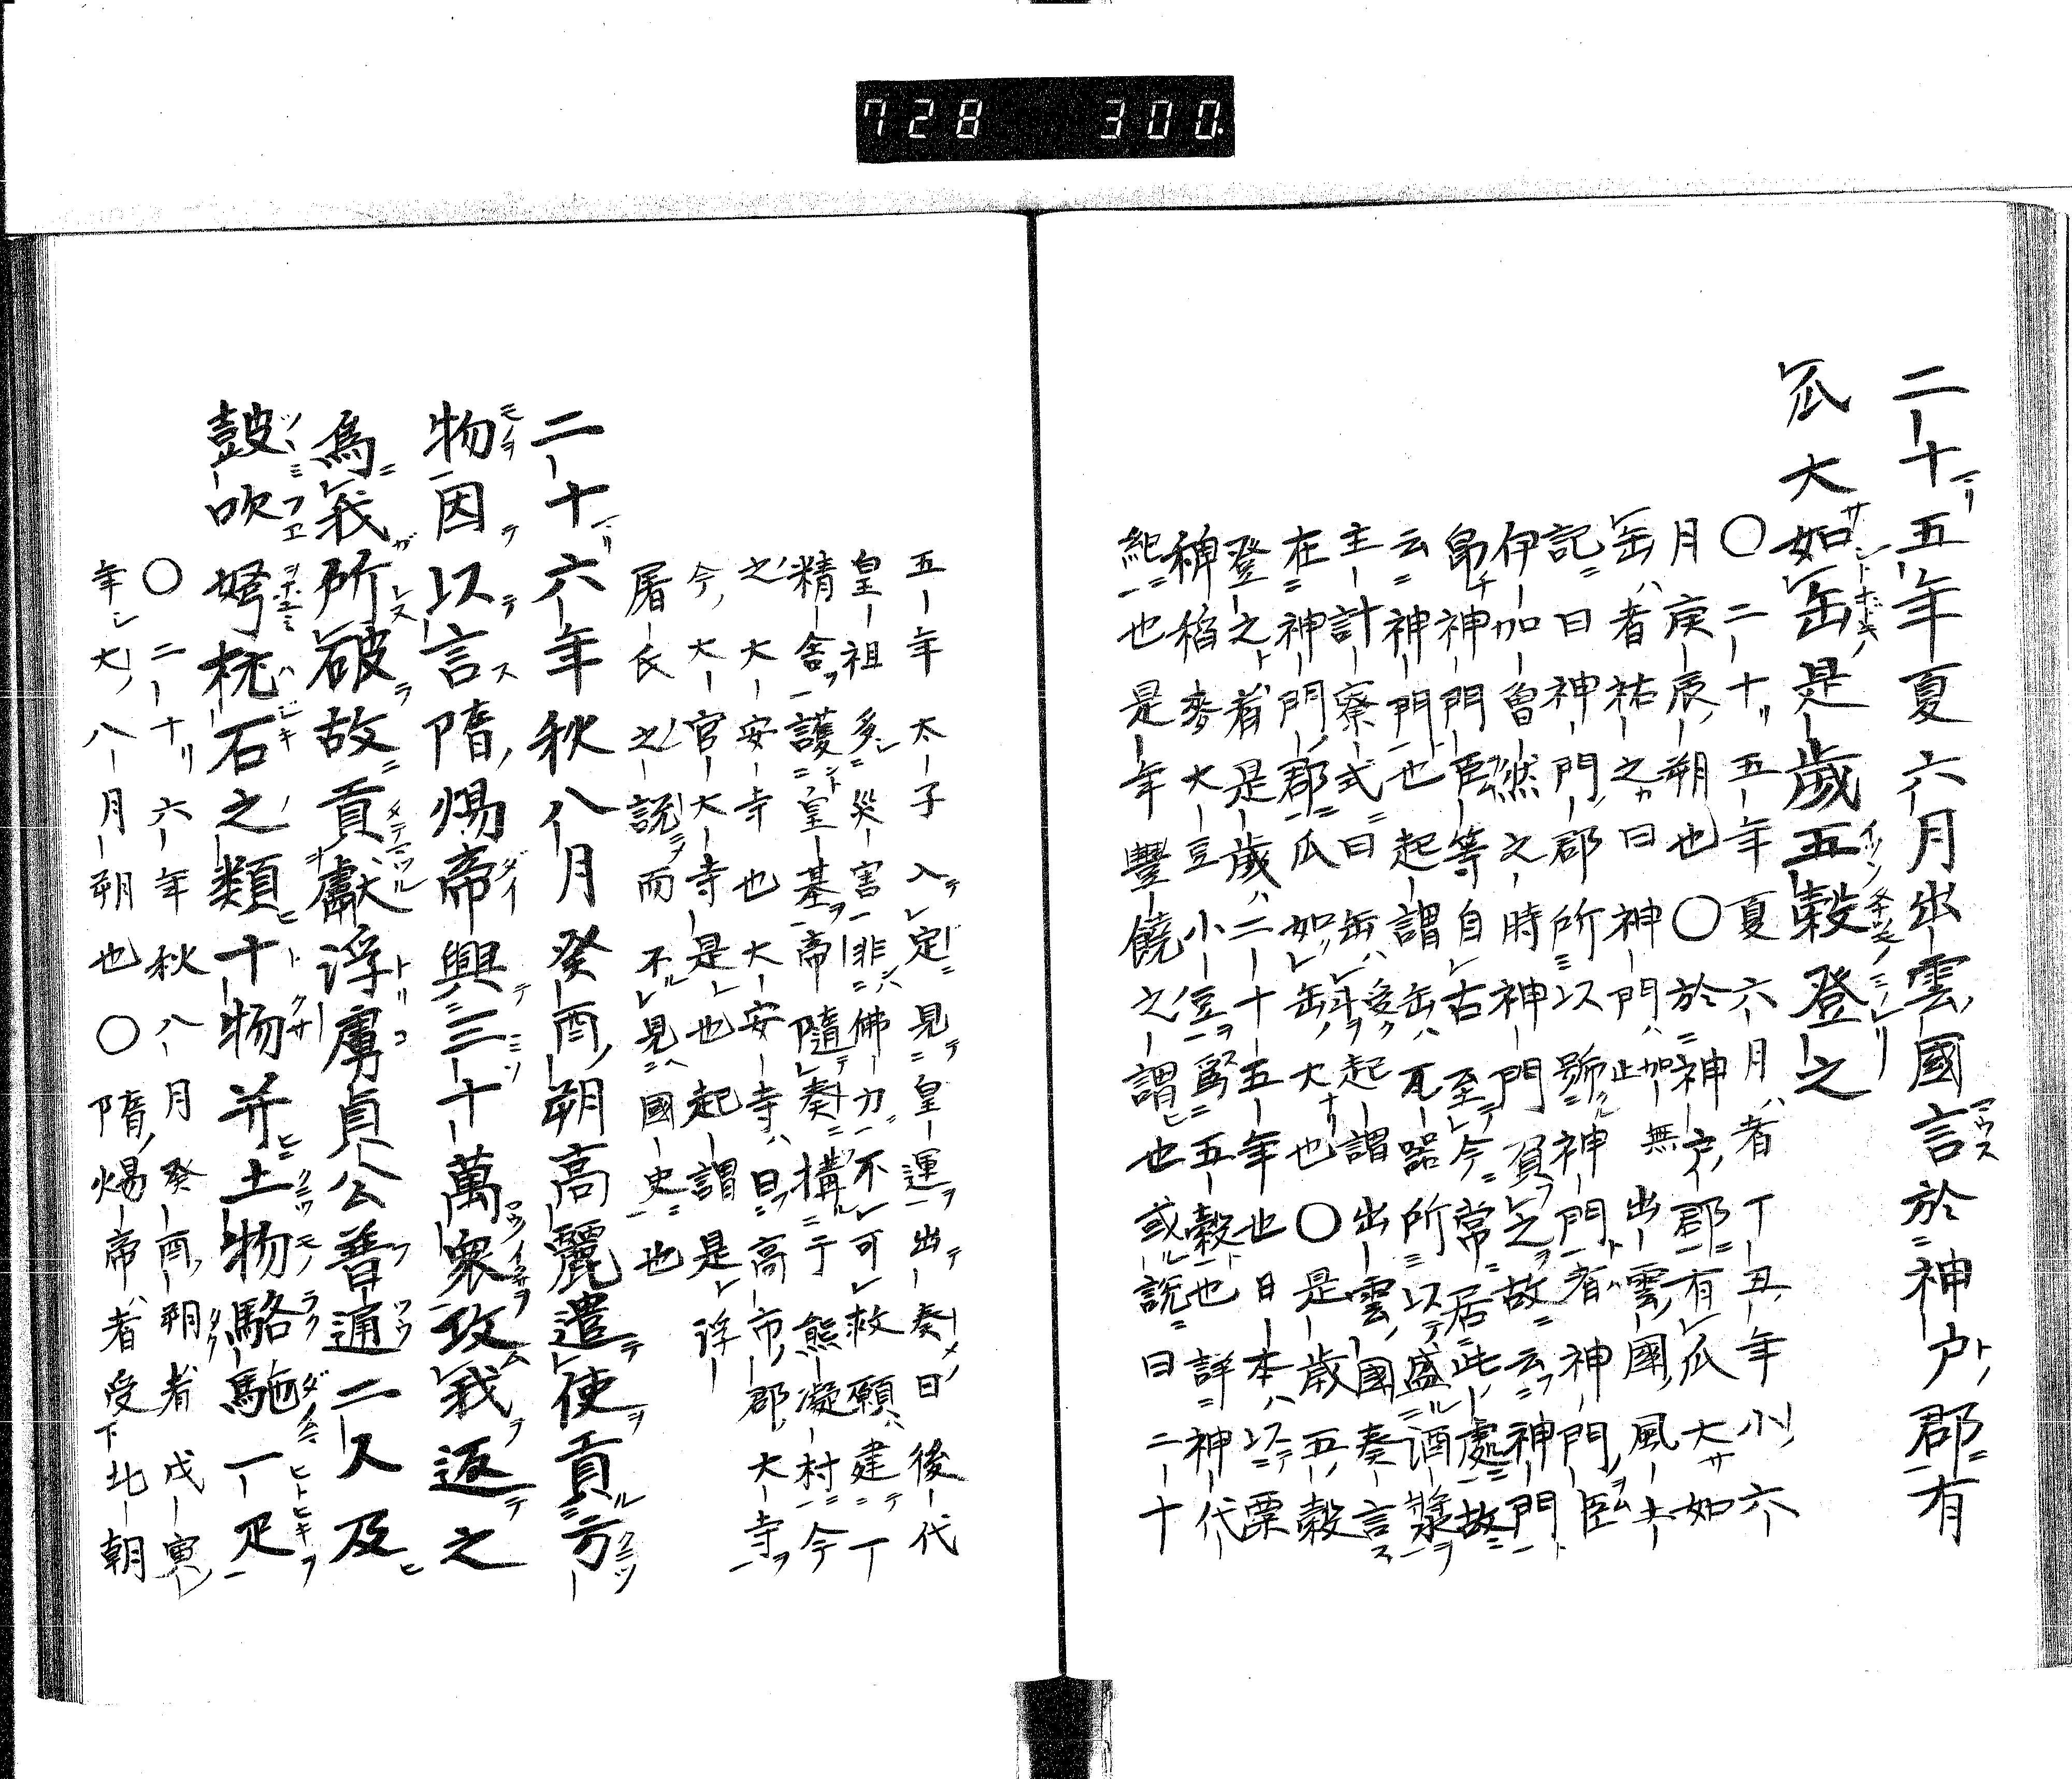 728 300
二十五年夏六月出雲國言於神戸郡有
瓜大如缶是歲五穀登之
〇二十五年夏六月者丁丑年小六
月庚辰朔也〇於神戸郡有瓜大如
缶者祐之曰神門止加無出雲國風土
記曰神門郡所以號神門者神門臣
伊加曽然之時神門負之故云神門
帛神門臣等自古至今常居此處故
云神門也起謂缶瓦器所以盛酒漿
主計寮式曰缶受斗起謂出雲國奏言
在神門郡瓜如缶大也〇是歲五穀
登之者是歲二十五年也日本以粟
稗稻麥大豆小豆為五穀也詳神代
紀也是年豐饒之謂也或說曰二十
五年太子入定見皇運出奏曰後代
皇祖多災害非佛力不可救願建丁
精舍護皇基帝隨奏構于熊凝村今
之大安寺也大安寺曰高市郡大寺
今大官大寺是也起謂是浮
屠氏之說而不見國史也
二十六年秋八月癸酉朔高麗遣使貢方
物因以言隋煬帝興三十萬衆攻我返之
爲我所破故貢獻浮虜貞公普通二人及
鼓吹弩抛石之類十物并土物駱駞一疋
〇二十六年秋八月癸酉朔者戊寅
年大八月朔也〇隋煬帝者受下北朝